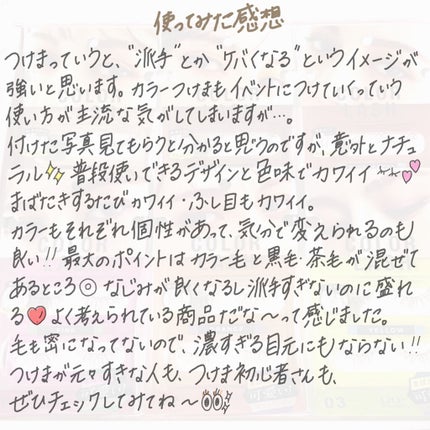 使ってみた感想
つけまっていうと、"派手"とか"ケバくなる"というイメージが
強いと思います。カラーつけまもイベントにつけていくっていう
使い方が主流な気がしてしまいますが…。
付けた写真見てもらうと分かると思うのですが、意外とナチュ
ラル✨普段使いできるデザインと色味でカワイイ💕
まばたきするたびカワイイ・ふし目もカワイイ。
カラーもそれぞれ個性があって、気分で変えられるのも
良い!!最大のポイントはカラー毛と黒毛・茶毛が混ぜて
あるところ◎なじみが良くなるし派手すぎないのに盛れ
る❤️よく考えられている商品だな〜って感じました。
毛も密になってないので、濃すぎる目元にもならない!!
つけまが元々すきな人も、つけま初心者さんも、
ぜひチェックしてみてね〜👀✨